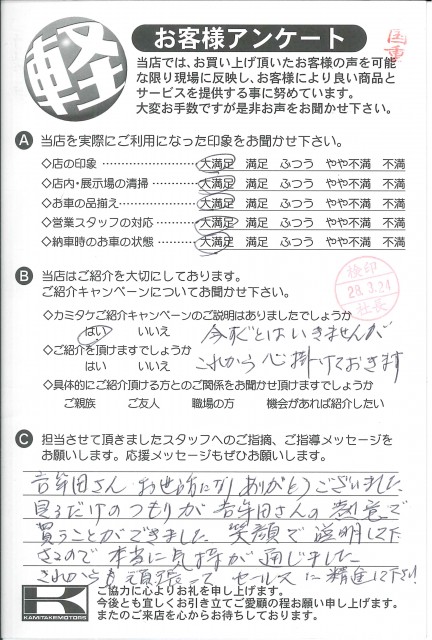 軽
お客様アンケート
当店では、お買い上げ頂いたお客様の声を可能
な限り現場に反映し、お客様により良い商品と
サービスを提供する事に努めています。
大変お手数ですが是非お声をお聞かせ下さい。
A 当店を実際にご利用になった印象をお聞かせ下さい。
◇店の印象 大満足 満足 ふつう やや不満 不満
◇店内・展示場の清掃 大満足 満足 ふつう やや不満 不満
◇お車の品揃え 大満足 満足 ふつう やや不満 不満
◇営業スタッフの対応 大満足 満足 ふつう やや不満 不満
◇納車時のお車の状態 大満足 満足 ふつう やや不満 不満
B 当店はご紹介を大切にしております。
ご紹介キャンペーンについてお聞かせ下さい。
検印
28.3.24
社長
◇カミタケご紹介キャンペーンのご説明はありましたでしょうか
はい いいえ 今すぐとはいきませんが
◇ご紹介を頂けますでしょうか
はい いいえ これから心掛けておきます
◇具体的にご紹介頂ける方とのご関係をお聞かせ頂けますでしょうか
ご親族 ご友人 職場の方 機会があれば紹介したい
C 担当させて頂きましたスタッフへのご指摘、ご指導メッセージを
お願いします。応援メッセージもぜひお願いします。
吉年田さん お世話になりありがとうございました
見るだけのつもりが 吉年田さんの熱意で
買うことができました 笑顔で説明して下
さるので 本当に気持が通じました
これからも頑張って セールスに精進して下さい
K
KAMITAKEMOTORS
ご協力に心よりお礼を申し上げます。
今後とも宜しくお引き立てご愛顧の程お願い申し上げます。
またのご来店を心からお待ちしております。